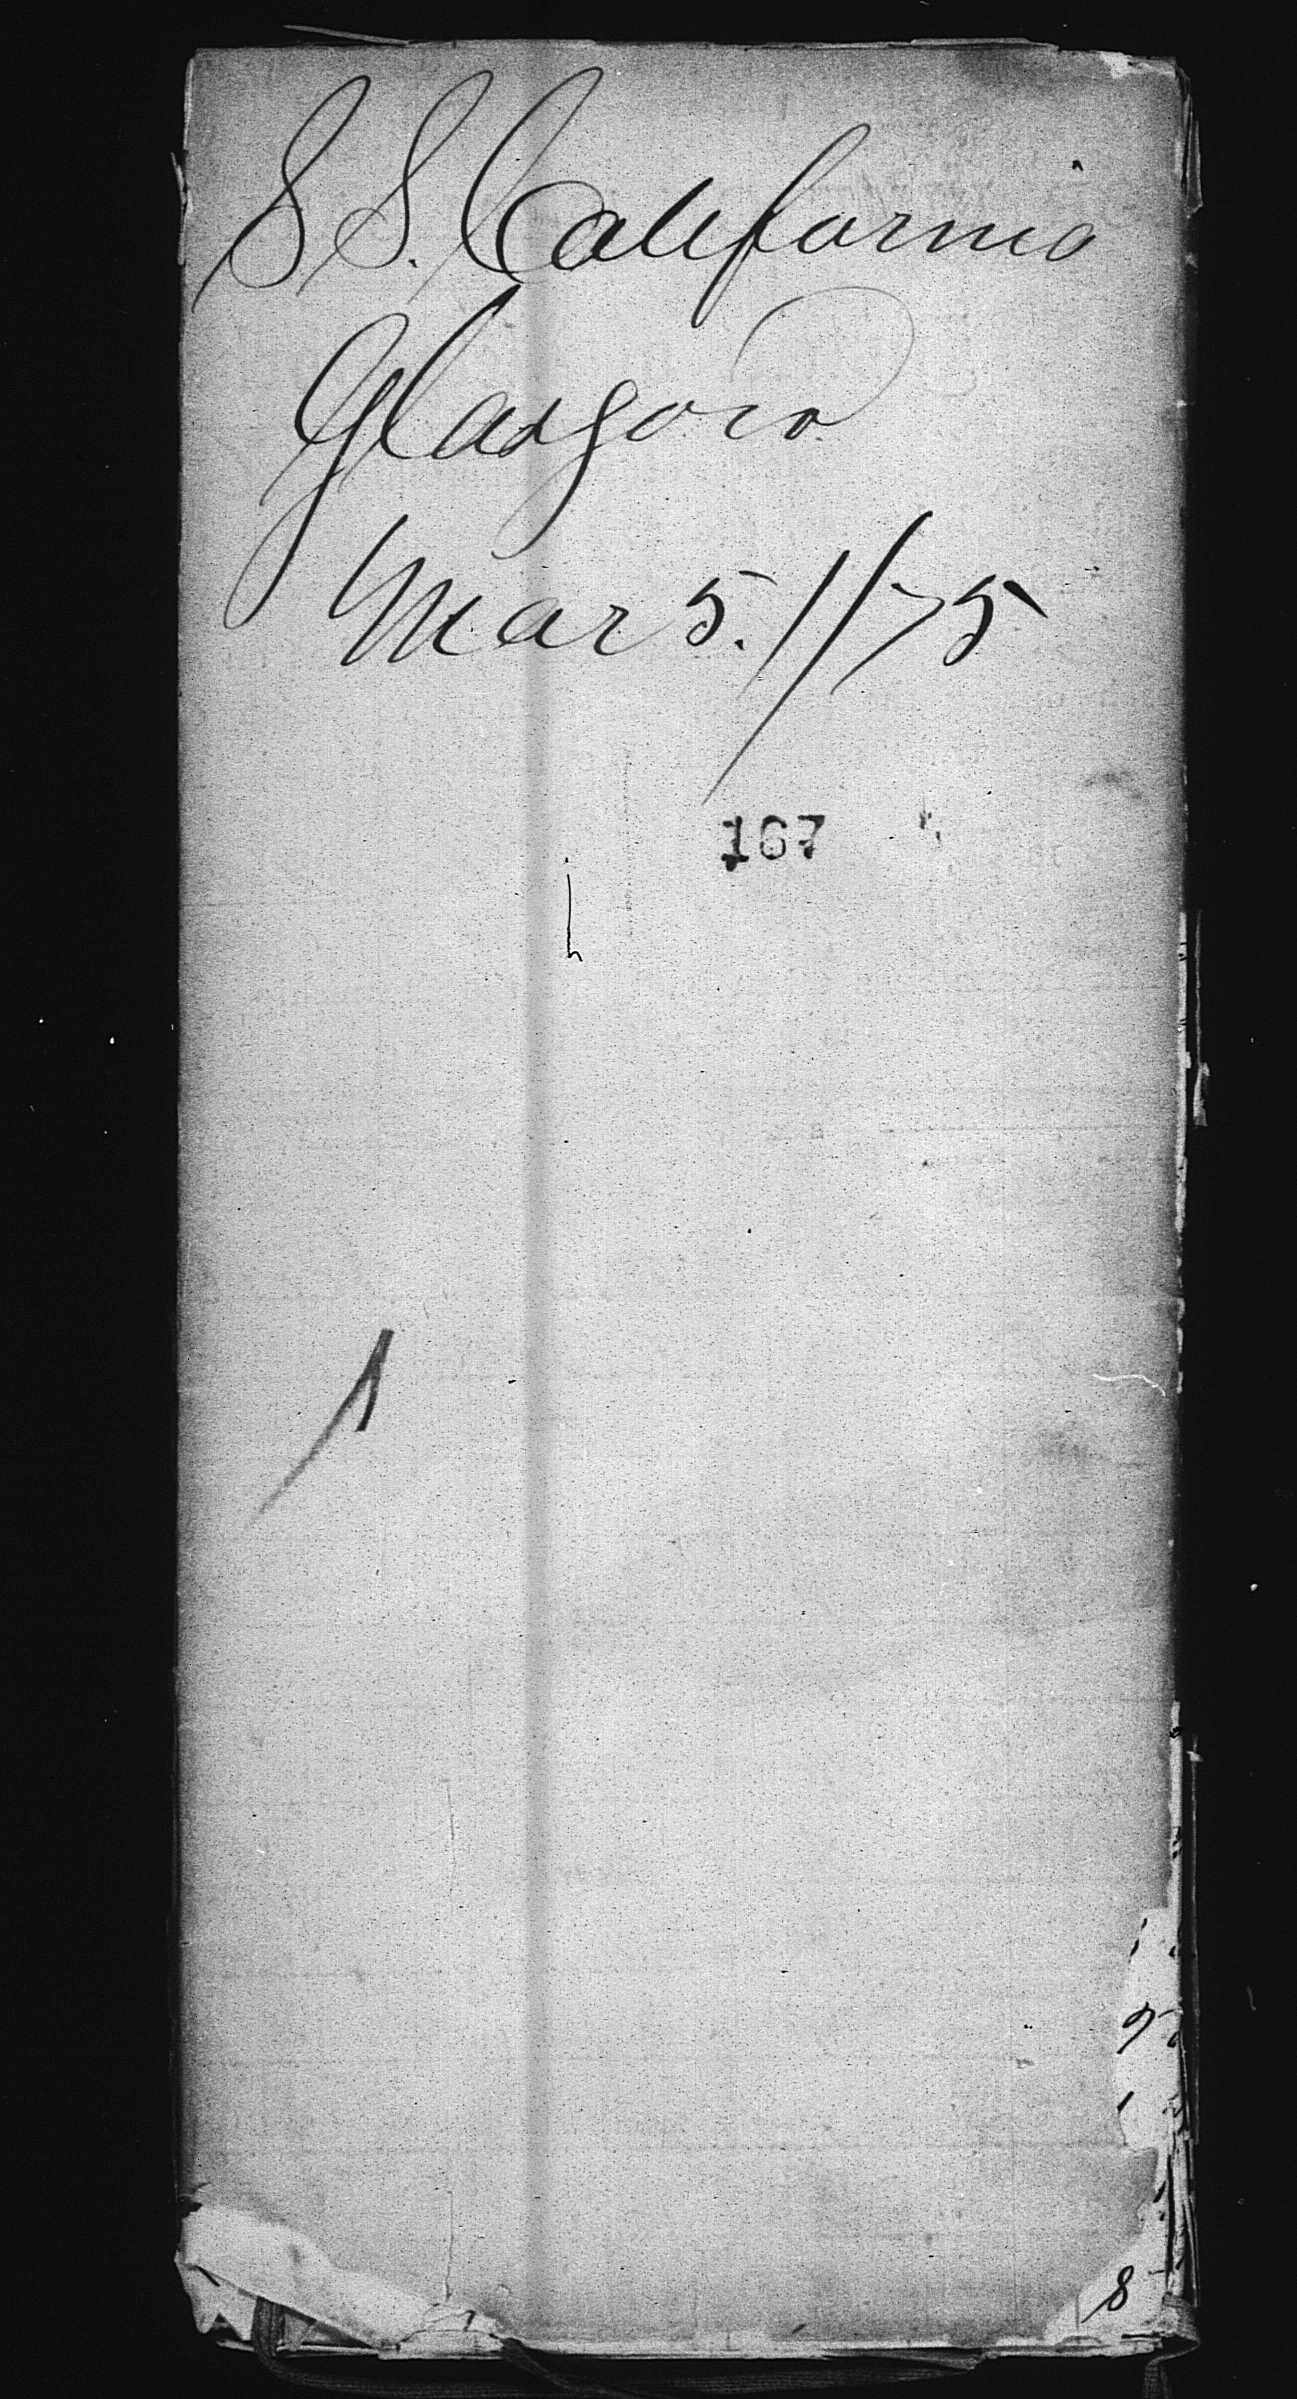 S S. California
Glasgow
Mar 5. // 75
167
1
8